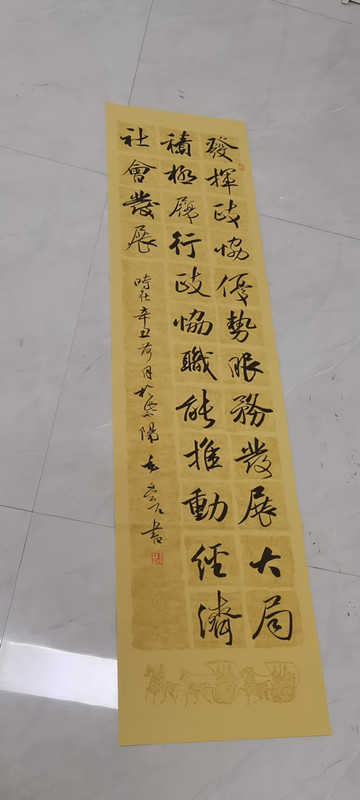 發揮政協優勢服務發展大局
積極履行政協職能推動經濟
社會發展
時在辛丑荷月於陽書